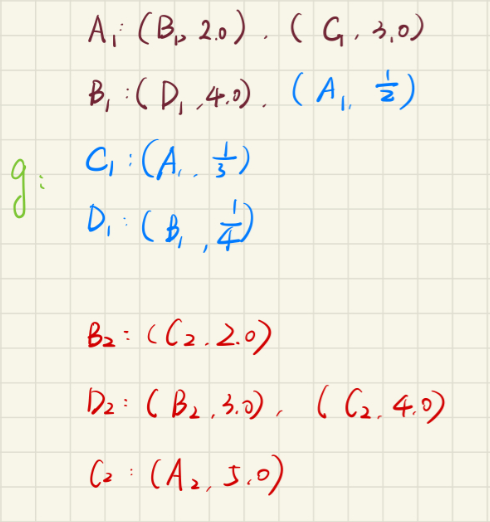 A₁: (B₁, 2.0), (C₁, 3.0)
B₁: (D₁, 4.0), (A₁, 1/2)
g:
C₁: (A₁, 1/3)
D₁: (B₁, 1/4)
B₂: (C₂, 2.0)
D₂: (B₂, 3.0), (C₂, 4.0)
C₂: (A₂, 5.0)